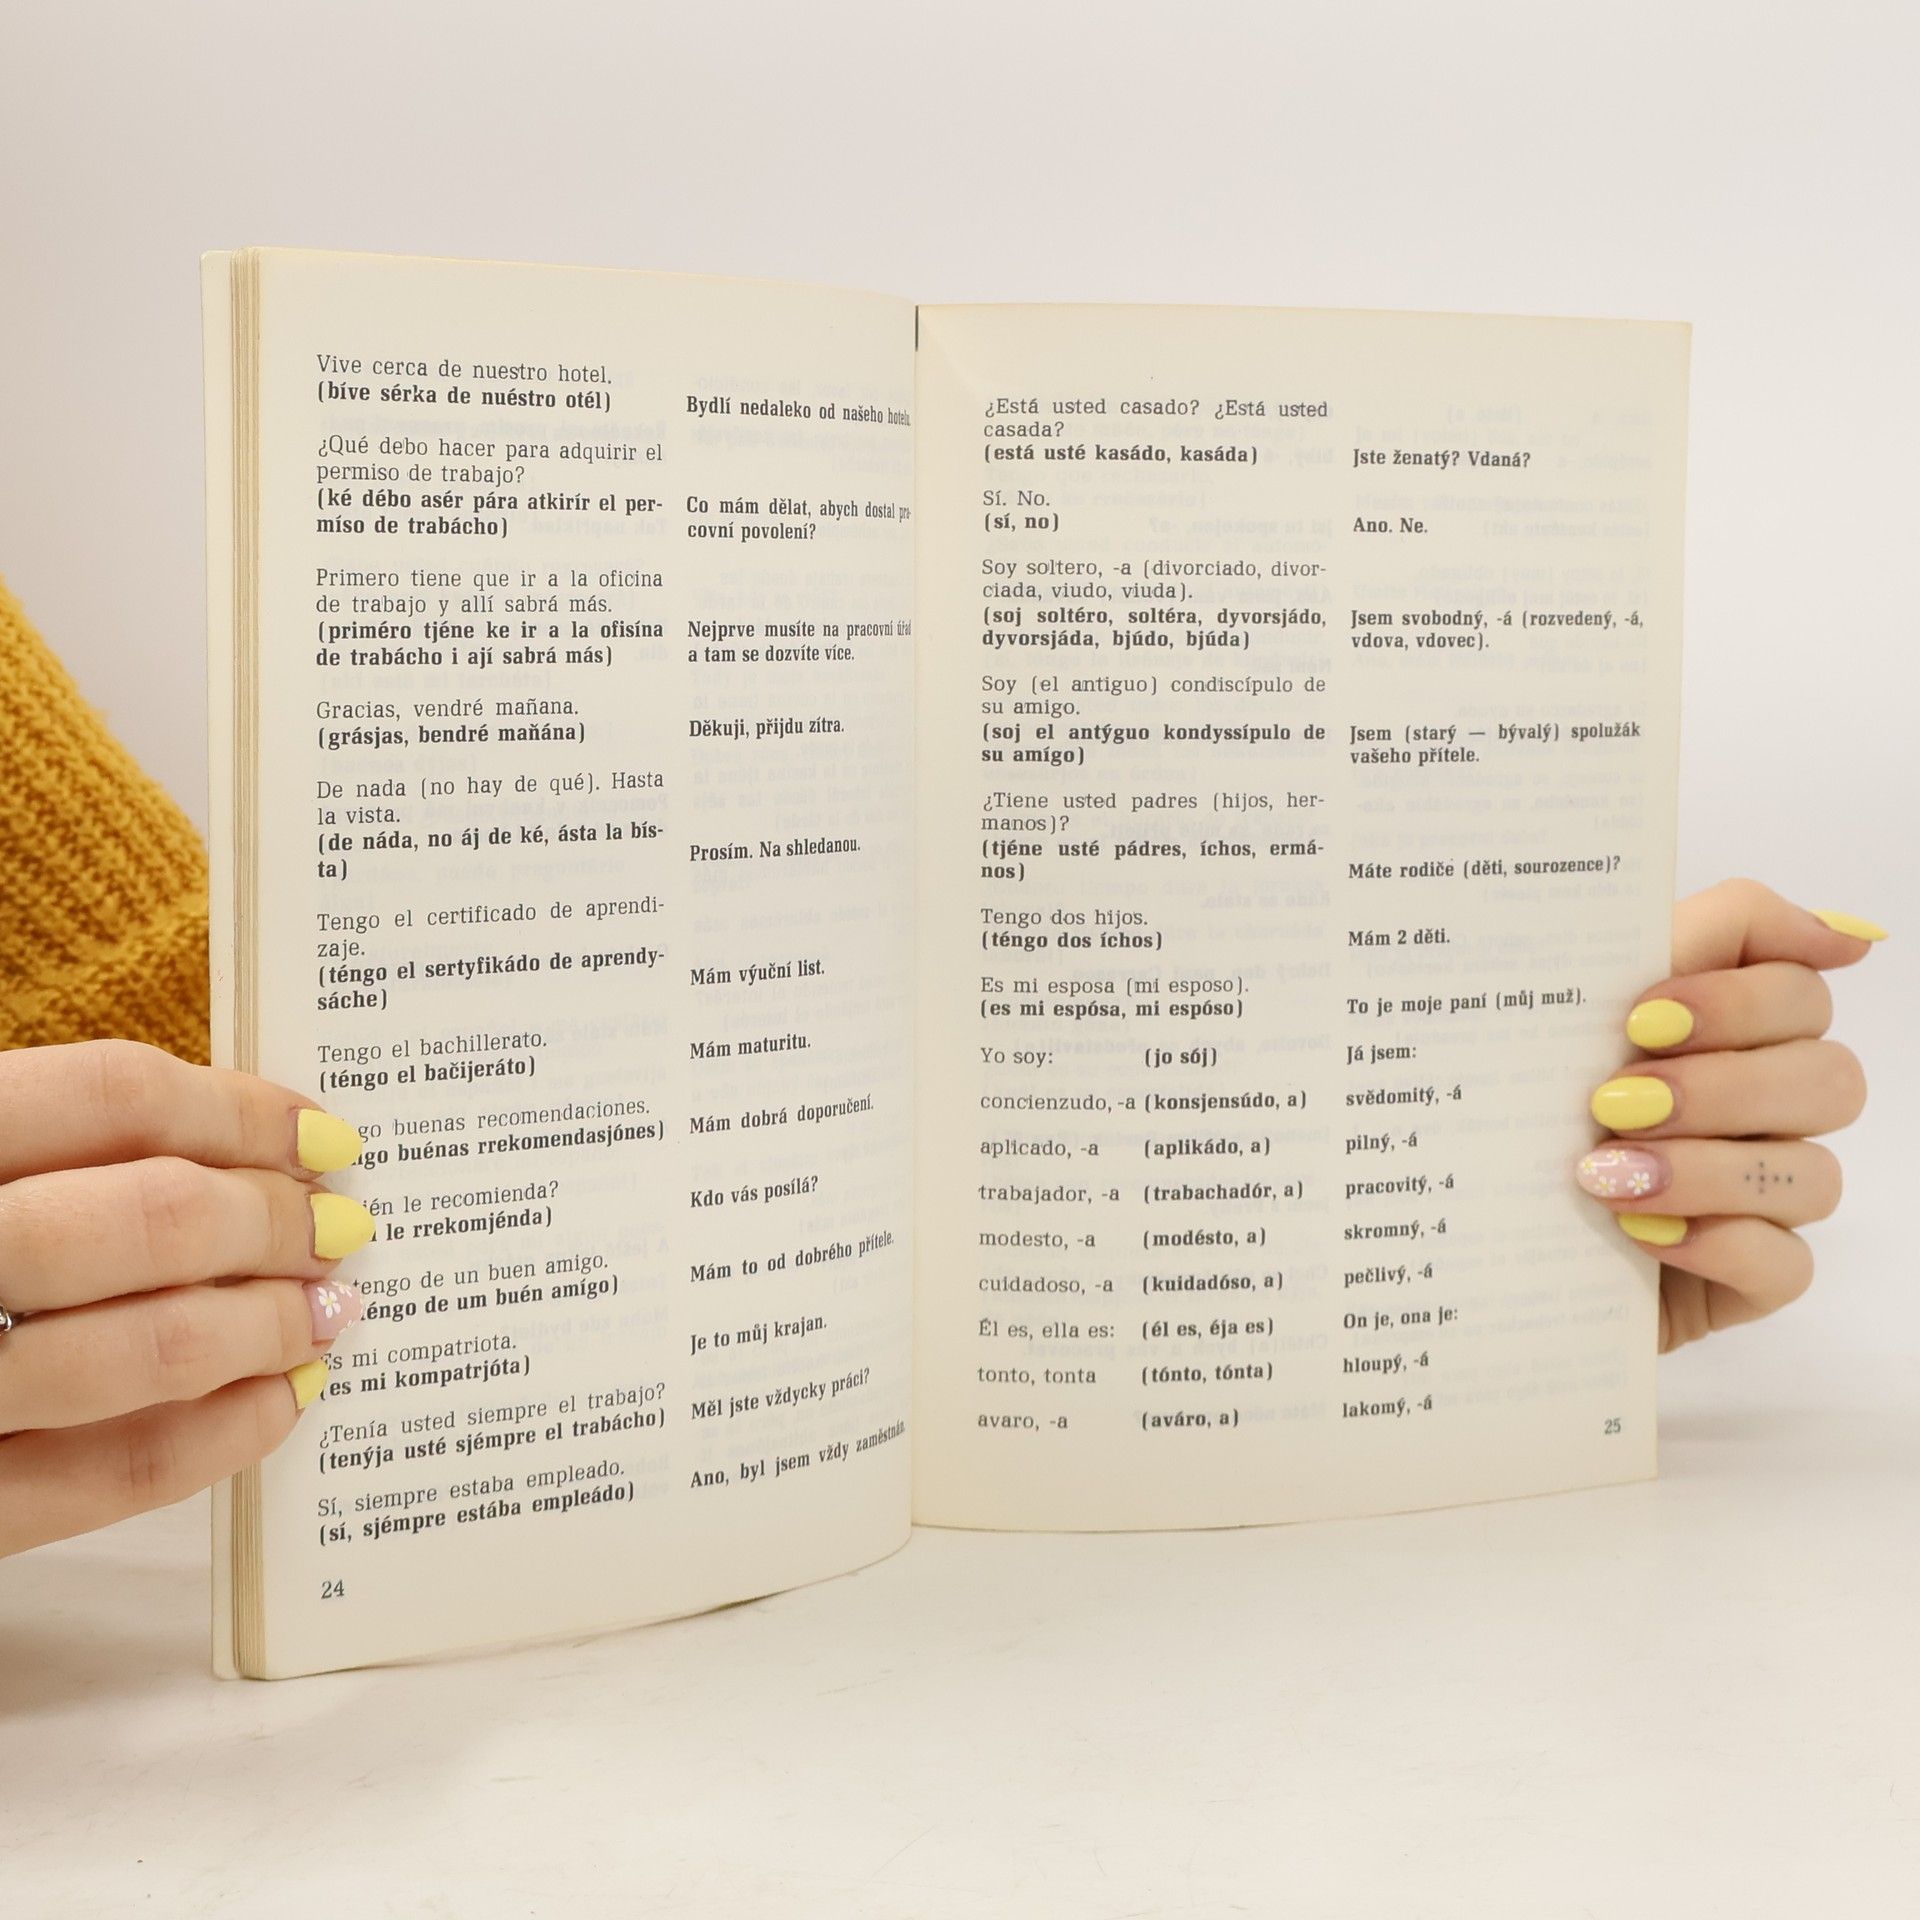 Vive cerca de nuestro hotel.
(bíve sérka de nuéstro otél)
Bydlí nedaleko od našeho hotelu.
¿Qué debo hacer para adquirir el
permiso de trabajo?
(ké débo asér pára atkirír el per-
míso de trabácho)
Co mám dělat, abych dostal pra-
covní povolení?
Primero tiene que ir a la oficina
de trabajo y allí sabrá más.
(priméro tjéne ke ir a la ofisína
de trabácho i ají sabrá más)
Nejprve musíte na pracovní úřad
a tam se dozvíte více.
Gracias, vendré mañana.
(grásjas, bendré maňána)
Děkuji, přijdu zítra.
De nada (no hay de qué). Hasta
la vista.
(de náda, no áj de ké, ásta la bís-
ta)
Prosím. Na shledanou.
Tengo el certificado de aprendi-
zaje.
(téngo el sertyfikádo de aprendy-
sáche)
Mám výuční list.
Tengo el bachillerato.
(téngo el bačijeráto)
Mám maturitu.
buenas recomendaciones.
buénas rrekomendasjónes)
Mám dobrá doporučení.
le recomienda?
le rrekomjénda)
Kdo vás posílá?
tengo de un buen amigo.
téngo de um buén amígo)
Mám to od dobrého přítele.
Es mi compatriota.
(es mi kompatrjóta)
Je to můj krajan.
¿Tenía usted siempre el trabajo?
(tenýja usté sjémpre el trabácho)
Měl jste vždycky práci?
Sí, siempre estaba empleado.
(sí, sjémpre estába empleádo)
Ano, byl jsem vždy zaměstnán.
24
¿Está usted casado? ¿Está usted
casada?
(está usté kasádo, kasáda)
Jste ženatý? Vdaná?
Sí. No.
(sí, no)
Ano. Ne.
Soy soltero, -a (divorciado, divor-
ciada, viudo, viuda).
(soj soltéro, soltéra, dyvorsjádo,
dyvorsjáda, bjúdo, bjúda)
Jsem svobodný, -á (rozvedený, -á,
vdova, vdovec).
Soy (el antiguo) condiscípulo de
su amigo.
(soj el antýguo kondyssípulo de
su amígo)
Jsem (starý — bývalý) spolužák
vašeho přítele.
¿Tiene usted padres (hijos, her-
manos)?
(tjéne usté pádres, íchos, ermá-
nos)
Máte rodiče (děti, sourozence)?
Tengo dos hijos.
(téngo dos íchos)
Mám 2 děti.
Es mi esposa (mi esposo).
(es mi espósa, mi espóso)
To je moje paní (můj muž).
Yo soy: (jo sój) Já jsem:
concienzudo, -a (konsjensúdo, a) svědomitý, -á
aplicado, -a (aplikádo, a) pilný, -á
trabajador, -a (trabachadór, a) pracovitý, -á
modesto, -a (modésto, a) skromný, -á
cuidadoso, -a (kuidadóso, a) pečlivý, -á
Él es, ella es: (él es, éja es) On je, ona je:
tonto, tonta (tónto, tónta) hloupý, -á
avaro, -a (aváro, a) lakomý, -á
25